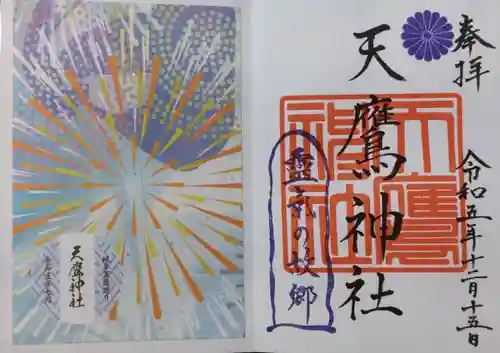 奉拝
天鷹神社
天鷹神社
靈気の故郷
令和五年十二月十五日
天鷹神社